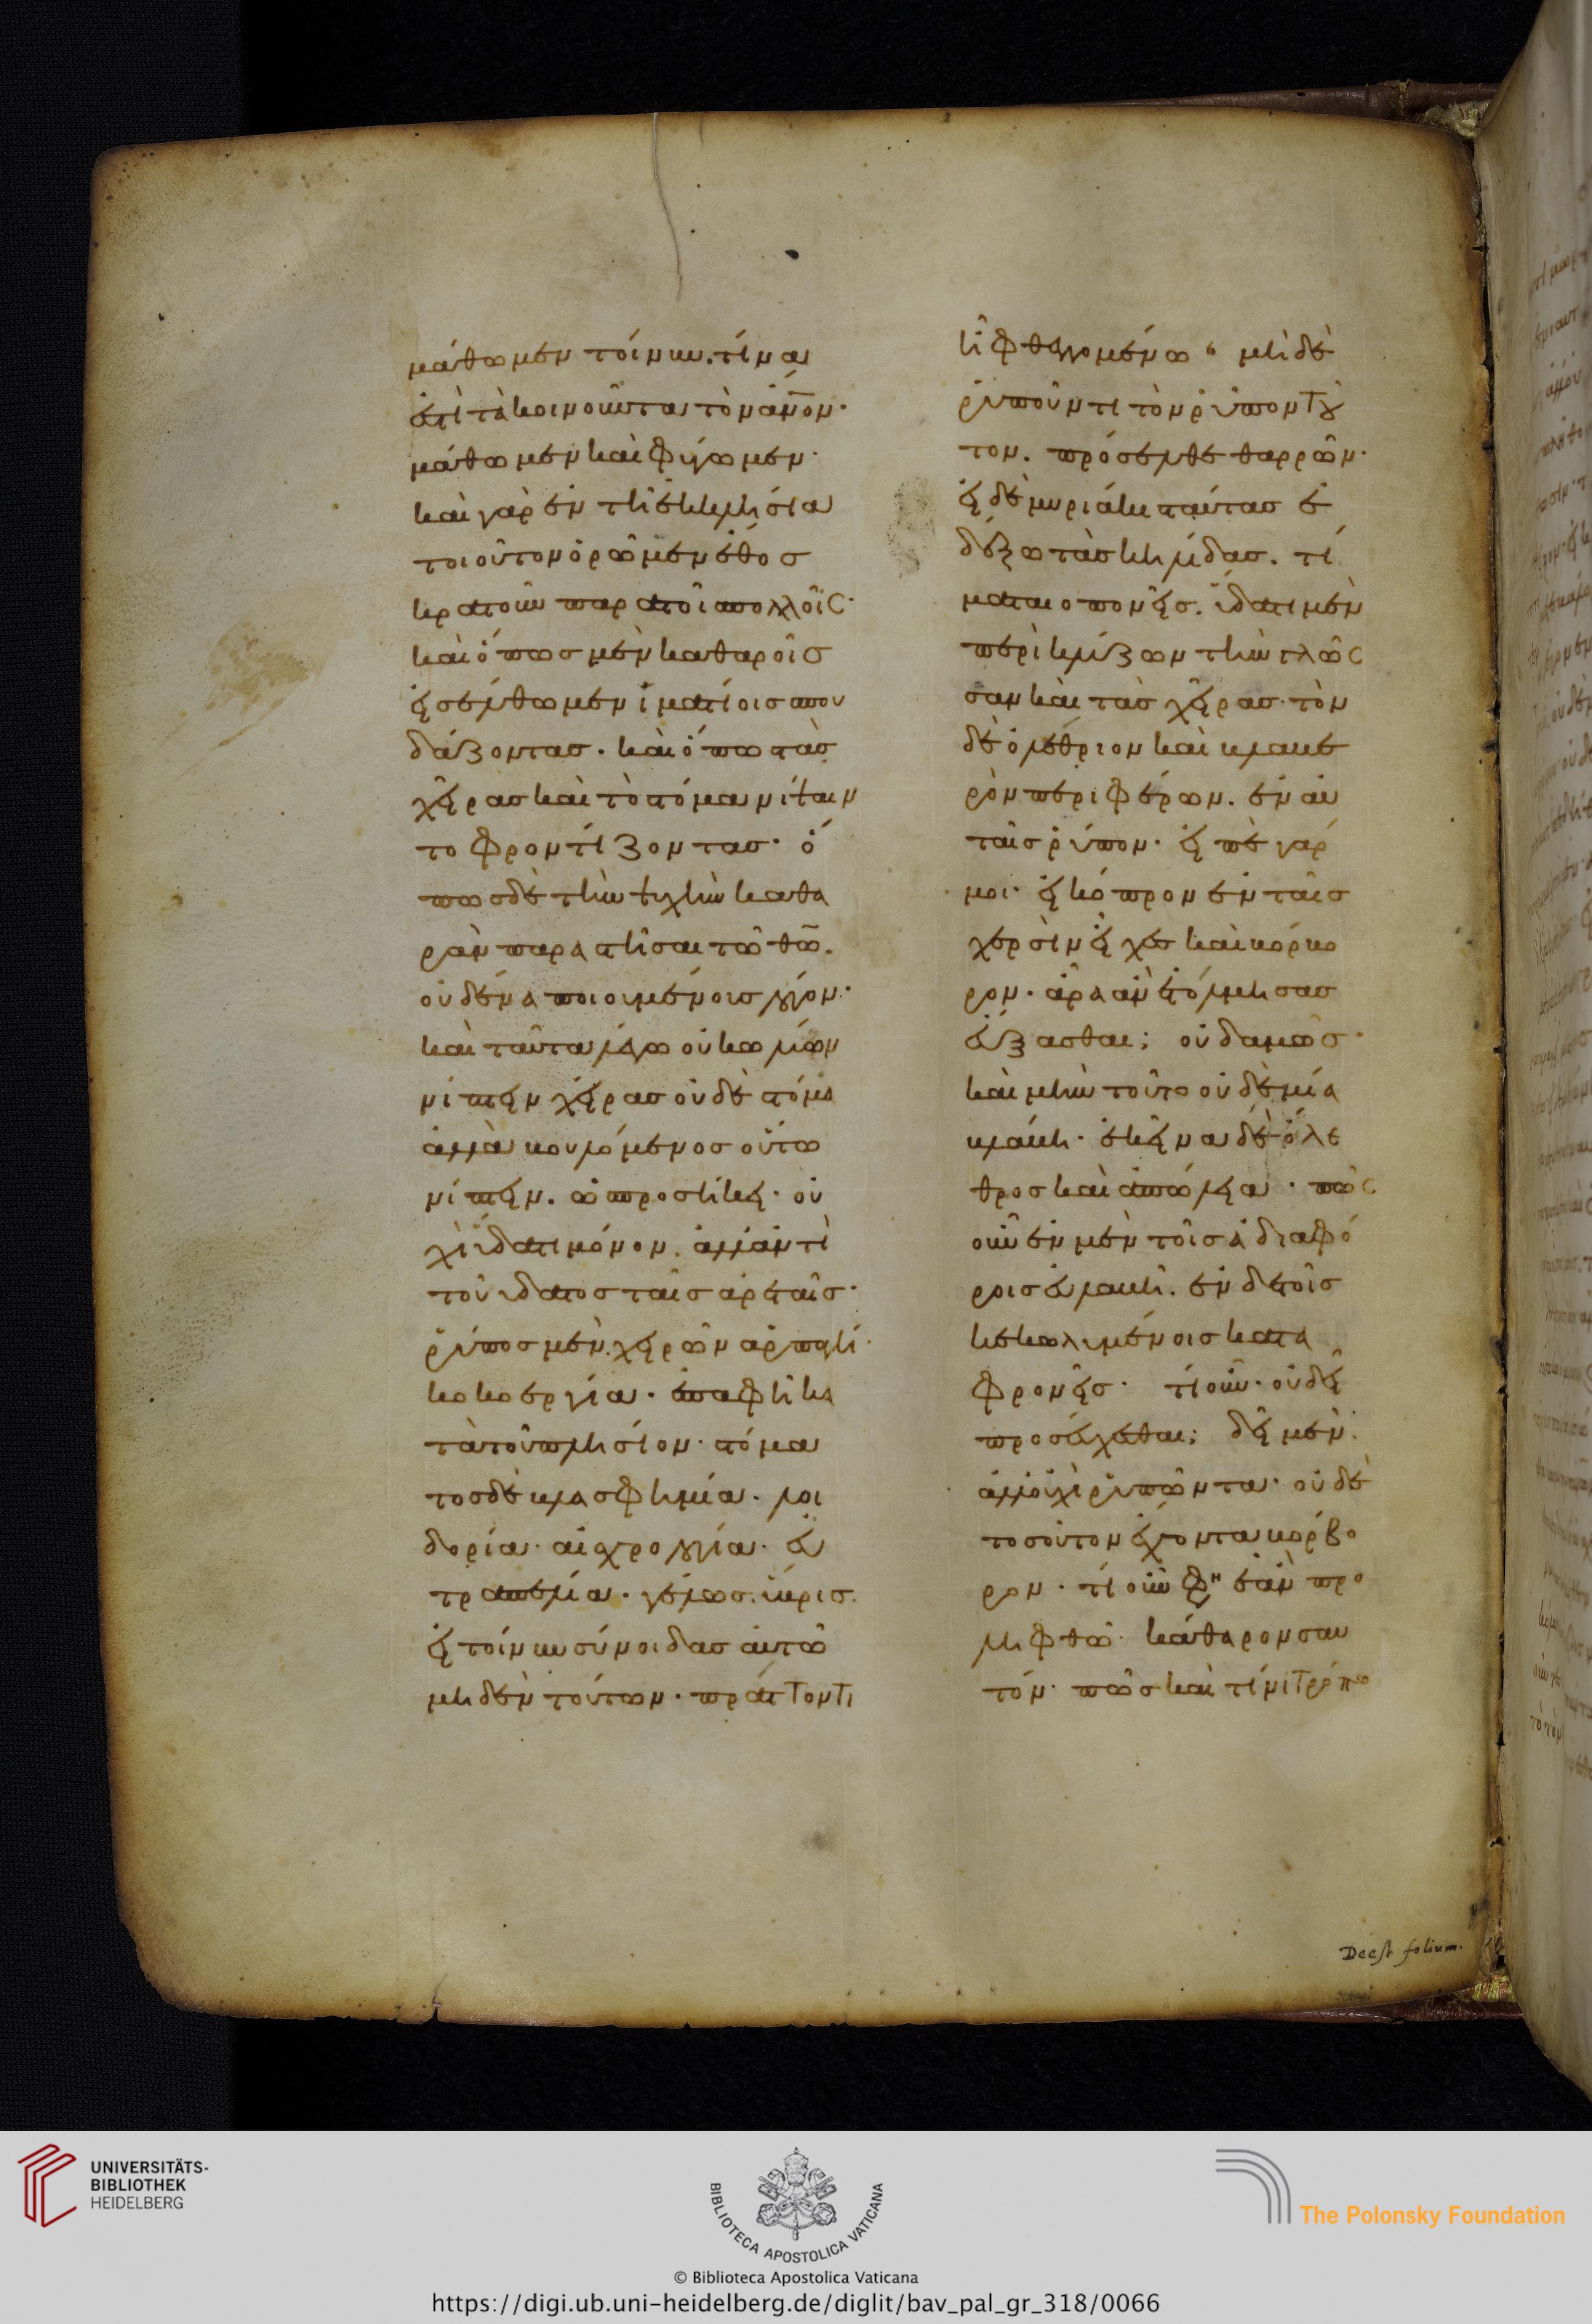 μάθωμεν τοίνυν. τίνα
ἐστὶ τὰ κοινοῦντα τὸν ἄνον·
μάθωμεν καὶ φύγωμεν·
καὶ γὰρ ἐν τῆ ἐκκλησία
τοιοῦτον ὁρῶμεν ἔθος
κρατοῦν παρα τοῖσ πολλοῖς·
καὶ ὅπως μὲν καθαροῖς
εἰσέλθωμεν ἱματίοις σπου
δάζοντας. καὶ ὅπως τὰς
χεῖρας καὶ τὸ στόμα νίψαιν
το φροντίζοντας· ὅ
πως δὲ τὴν ψυχὴν καθα
ρὰν παραστῆσαι τῶ θῶ.
οὐδένα ποιουμένοις λόγον·
καὶ ταῦτα λέγω οὐ κωλύων
νίπτειν χεῖρας οὐδὲ στόμα
ἀλλὰ βουλόμενος οὕτω
νίπτειν. ὡς προσήκει· οὐ
χὶ ὕδατι μόνον. ἀλλ' ἀντὶ
τοῦ ὕδατος ταῖς ἀρεταῖς·
ῥύπος μὲν χειρῶν ἁρπαγή·
κακοεργία. ἐπαφὴ κα
τὰ τοῦ πλησίον· στόμα
τος δὲ βλασφημία. λοι
δορία. αἰσχρολογία. εὐ
τραπελία. γέλως. ὕβρις.
εἰ τοίνυν σύνοιδας αὐτῶ
μηδὲν τούτων. πράττοντι
ἢ φθεγγομένω· μηδὲ
ῥυποῦντι τὸν ῥύπον τοῦ
τον. πρόσελθε θαρρῶν·
εἰ δὲ μυριάκις ταύτας ἐ
δέξω τὰς κηλίδας. τί
ματαιοπονεῖς. ὕδατι μὲν
περικλύζων τὴν γλῶς
σαν καὶ τὰς χεῖρας· τὸν
δὲ ὀλέθριον καὶ βλαβε
ρὸν περιφέρων. ἐν αὐ
ταῖς ῥύπον· εἰπὲ γάρ
μοι· εἰ κόπρον ἐν ταῖς
χερσὶν εἶχες καὶ βόρβο
ρον. ἆρα ἂν ἐτόλμησας
εὔξασθαι; οὐδαμῶς·
καὶ μὴν τοῦτο οὐδὲ μία
βλάβη· ἐκεῖνα δὲ ὄλε
θρος καὶ ἀπώλεια. πῶς
οὖν ἐν μὲν τοῖς ἀδιαφό
ροις εὐλαβῆ. ἐν δὲ τοῖς
κεκωλυμένοις κατα
φρονεῖς· τί οὖν· οὐ δεῖ
προσεύχεσθαι; δεῖ μὲν·
ἀλλ' οὐχὶ ῥυπῶντα· οὐδὲ
τοσοῦτον ἔχοντα βόρβο
ρον. τί οὖν φη ἐὰν προ
ληφθῶ· κάθαρον σαυ
τόν· πῶς καὶ τίνι τρόπω
Deest folium.
UNIVERSITÄTS-
BIBLIOTHEK
HEIDELBERG
BIBLIOTECA APOSTOLICA VATICANA
The Polonsky Foundation
© Biblioteca Apostolica Vaticana
https://digi.ub.uni-heidelberg.de/diglit/bav_pal_gr_318/0066